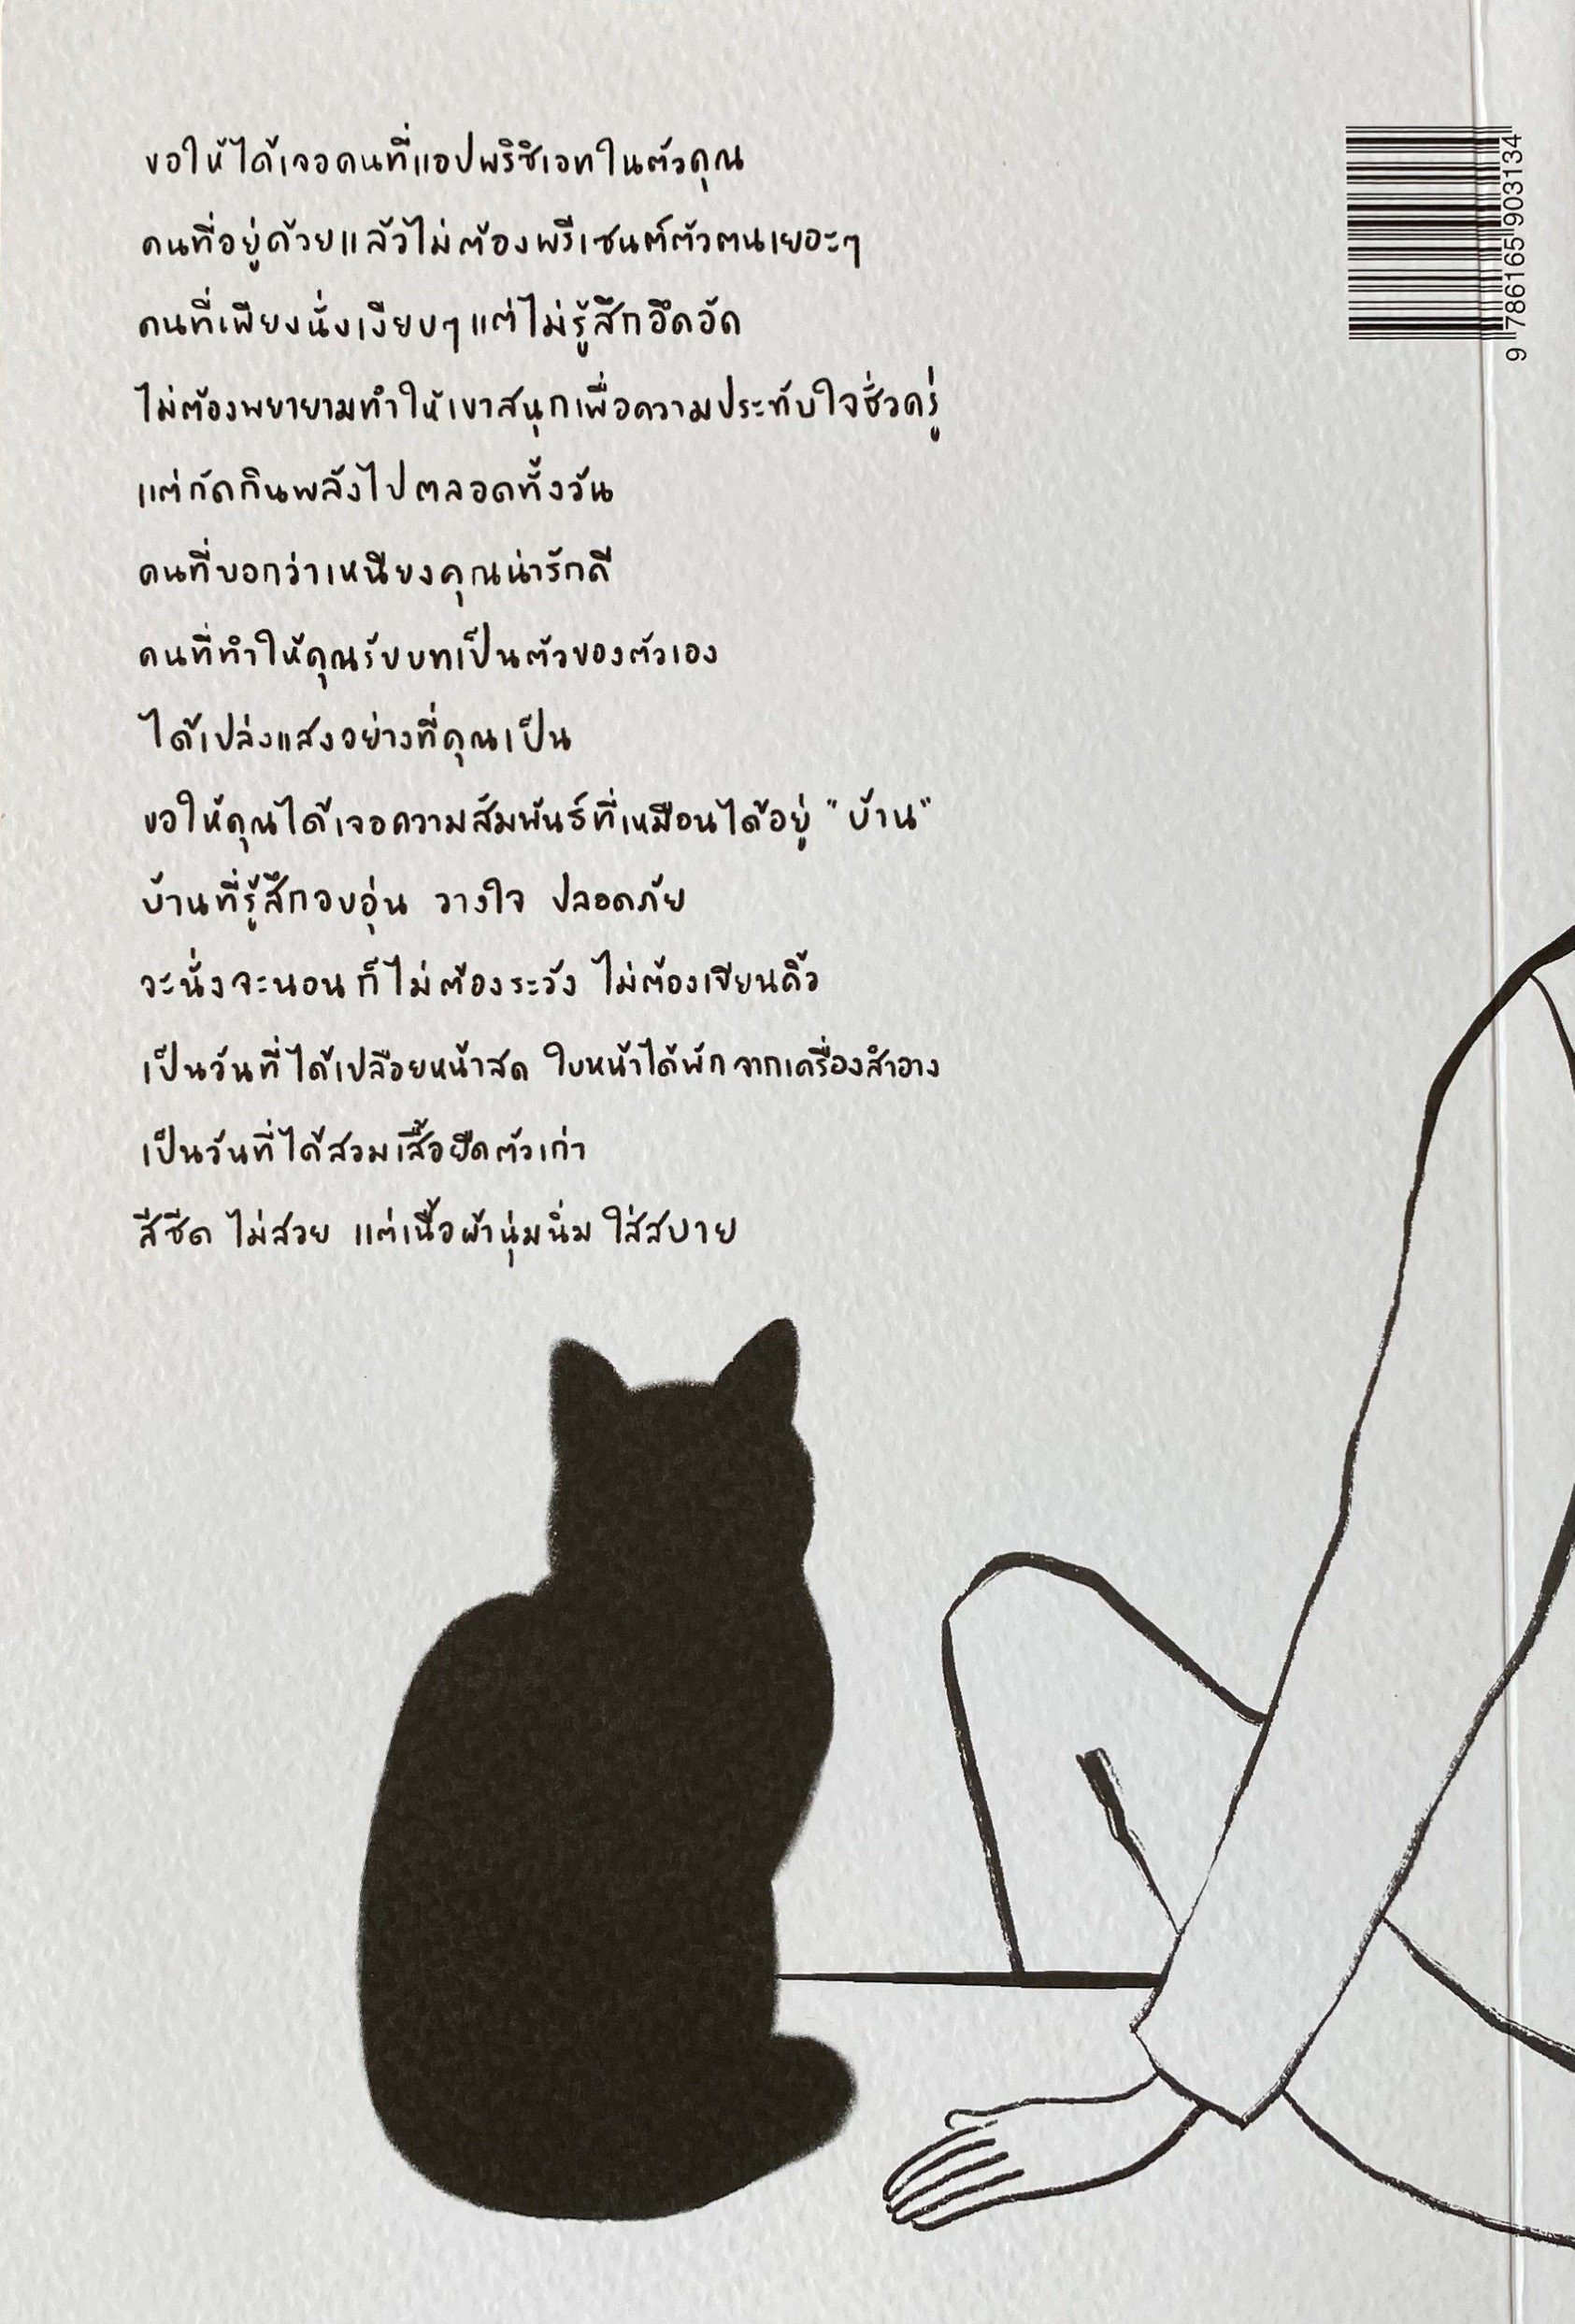 ขอให้ได้เจอคนที่แอปพริซิเอทในตัวคุณ
คนที่อยู่ด้วยแล้วไม่ต้องพรีเซนต์ตัวตนเยอะๆ
คนที่เพียงนั่งเงียบๆ แต่ไม่รู้สึกอึดอัด
ไม่ต้องพยายามทำให้เขาสนุกเพื่อความประทับใจชั่วครู่
แต่กัดกินพลังไปตลอดทั้งวัน
คนที่บอกว่าเหนียงคุณน่ารักดี
คนที่ทำให้คุณรับบทเป็นตัวของตัวเอง
ได้เปล่งแสงอย่างที่คุณเป็น
ขอให้คุณได้เจอความสัมพันธ์ที่เหมือนได้อยู่ "บ้าน"
บ้านที่รู้สึกอบอุ่น วางใจ ปลอดภัย
จะนั่งจะนอนก็ไม่ต้องระวัง ไม่ต้องเขียนคิ้ว
เป็นวันที่ได้เปลือยหน้าสด ใบหน้าได้พักจากเครื่องสำอาง
เป็นวันที่ได้สวมเสื้อยืดตัวเก่า
สีซีด ไม่สวย แต่เนื้อผ้านุ่มนิ่ม ใส่สบาย
9 786165 903134